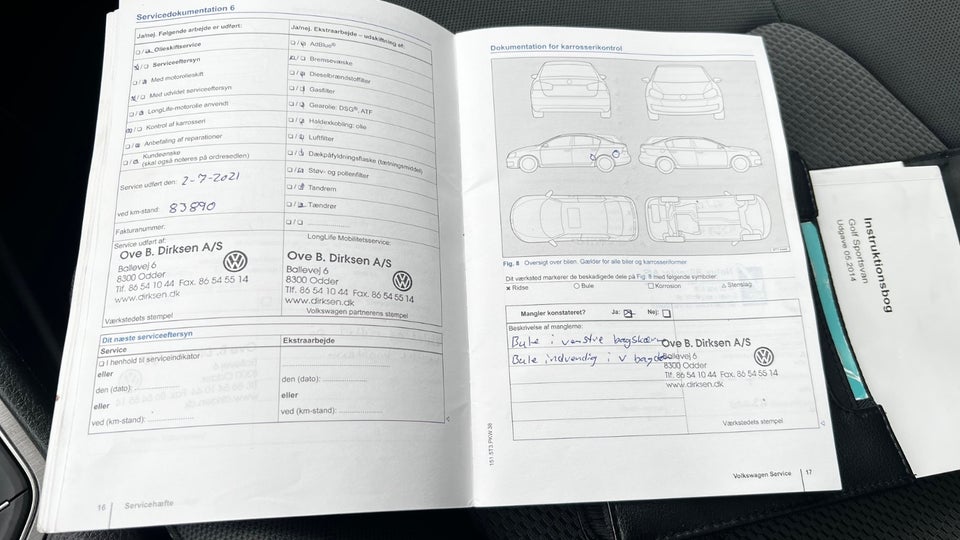 Servicedokumentation 6
Ja/nej. Følgende arbejde er udført:
Olieskiftservice
Serviceeftersyn
Med motorolieskift
Med udvidet serviceeftersyn
LongLife-motorolie anvendt
Kontrol af karrosseri
Anbefaling af reparationer
Kundeønske
(skal også noteres på ordresedlen)
Service udført den: 2-7-2021
ved km-stand: 83890
Fakturanummer:
Service udført af:
Ove B. Dirksen A/S
Ballevej 6
8300 Odder
Tlf. 86 54 10 44 Fax. 86 54 55 14
www.dirksen.dk
Værkstedets stempel
Ja/nej. Ekstraarbejde – udskiftning af:
AdBlue®
Bremsevæske
Dieselbrændstoffilter
Gasfilter
Gearolie: DSG®, ATF
Haldexkobling: olie
Luftfilter
Dækpåfyldningsflaske (tætningsmiddel)
Støv- og pollenfilter
Tandrem
Tændrør
LongLife Mobilitetsservice:
Ove B. Dirksen A/S
Ballevej 6
8300 Odder
Tlf. 86 54 10 44 Fax. 86 54 55 14
www.dirksen.dk
Volkswagen partnerens stempel
Dit næste serviceeftersyn
Service
I henhold til serviceindikator
eller
den (dato):
eller
ved (km-stand):
Ekstraarbejde
den (dato):
eller
ved (km-stand):
16 Servicehæfte
Dokumentation for karrosserikontrol
Fig. 8 Oversigt over bilen. Gælder for alle biler og karrosseriformer
Dit værksted markerer de beskadigede dele på Fig. 8 med følgende symboler:
× Ridse ○ Bule □ Korrosion △ Stenslag
Mangler konstateret? Ja: Nej:
Beskrivelse af manglerne:
Bule i venstre bagskærm
Bule indvendig i v
Ove B. Dirksen A/S
Ballevej 6
8300 Odder
Tlf. 86 54 10 44 Fax. 86 54 55 14
www.dirksen.dk
Værkstedets stempel
151.5T3.PKW.38
Volkswagen Service 17
Instruktionsbog
Golf Sportsvan
Udgave 05.2014